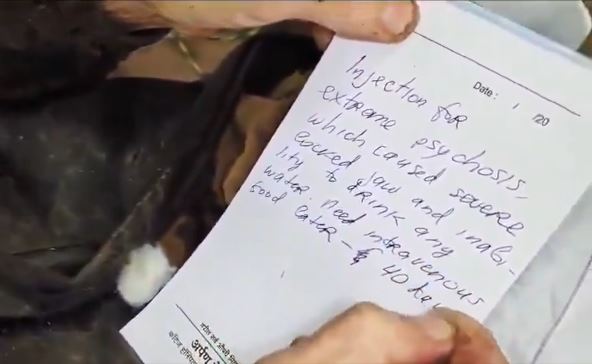 Date: / 20
Injection for
extreme psychosis,
which caused severe
locked jaw and inabi-
lity to drink any
water. need intravenous
food later - 40 day
अर्पण